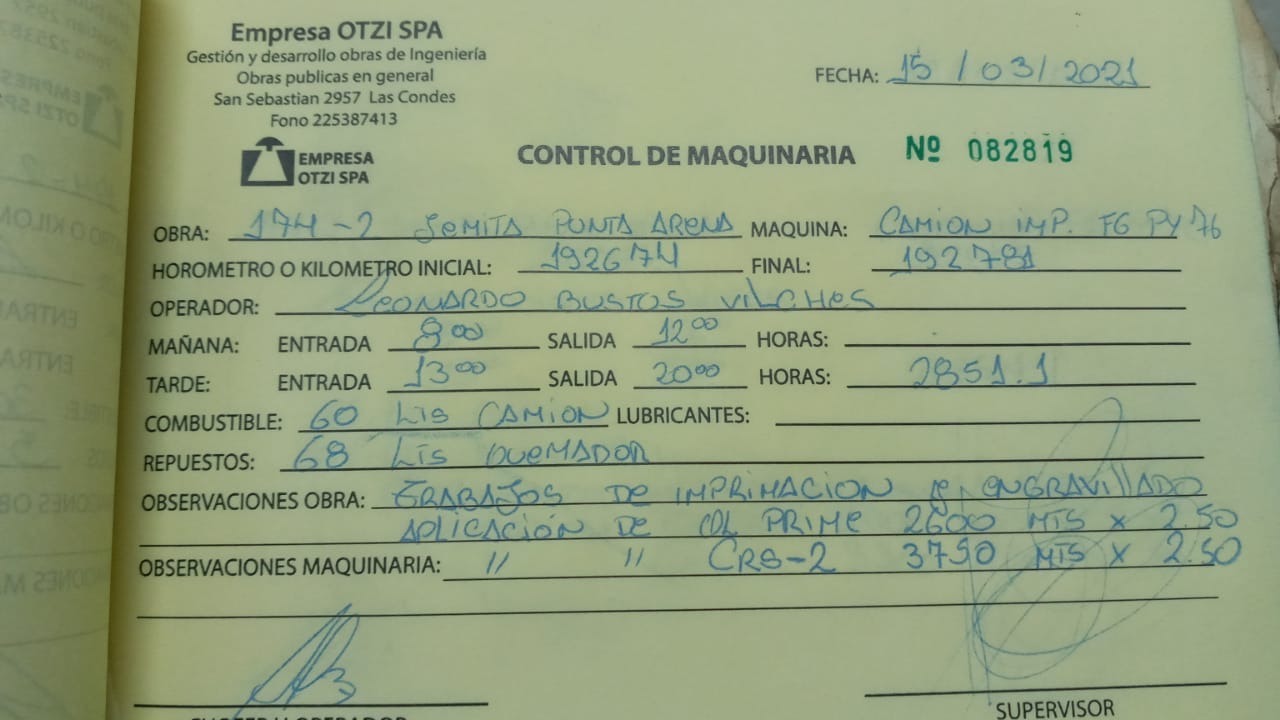 Empresa OTZI SPA
Gestión y desarrollo obras de Ingeniería
Obras publicas en general
San Sebastian 2957 Las Condes
Fono 225387413
EMPRESA
OTZI SPA
FECHA: 15 / 03 / 2021
CONTROL DE MAQUINARIA Nº 082819
OBRA: 174-2 SEMITA PUNTA ARENA MAQUINA: CAMION IMP. FG PY 76
HOROMETRO O KILOMETRO INICIAL: 192674 FINAL: 192781
OPERADOR: LEONARDO BUSTOS VILCHES
MAÑANA: ENTRADA 8:00 SALIDA 12:00 HORAS:
TARDE: ENTRADA 13:00 SALIDA 20:00 HORAS: 2851.1
COMBUSTIBLE: 60 Lts CAMION LUBRICANTES:
REPUESTOS: 68 Lts QUEMADOR
OBSERVACIONES OBRA: TRABAJOS DE IMPRIMACION ENGRAVILLADO
APLICACIÓN DE PRIME 2600 MTS x 2.50
OBSERVACIONES MAQUINARIA: // // CRS-2 3790 MTS x 2.50
OPERADOR
SUPERVISOR